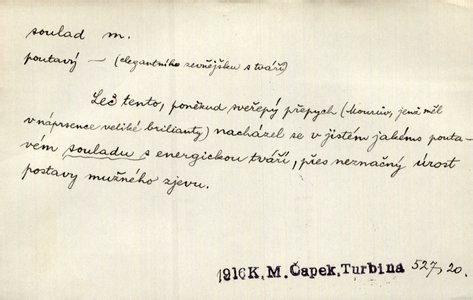 soulad m.
poutavý — (elegantního zevnějšku s tváří)
Leč tento, poněkud sveřepý přepych (Mourův, jenž měl
v náprsence veliké brilianty) nacházel se v jistém jakéms pouta-
vém souladu s energickou tváří, přes neznačný úrost
postavy mužného zjevu.
1916 K. M. Čapek, Turbina 527, 20.